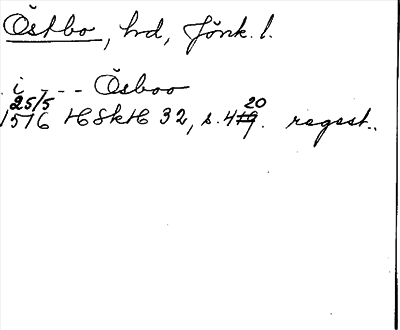 Östbo, hd, Jönk. l.
i - - - Ösboo
25/5 20
1516 HSkH 32, s. 419. regest.